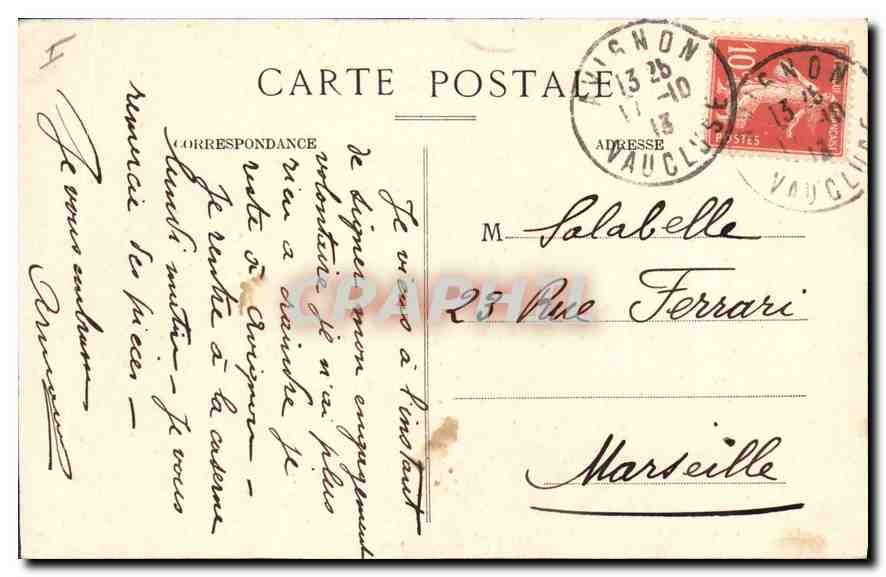 CARTE POSTALE
CORRESPONDANCE
ADRESSE
AVIGNON
13 25
17 -10
13
VAUCLUSE
10
POSTES
GNON
13 25
VAUCLUSE
M Salabelle
23 Rue Ferrari
Marseille
Je viens à l'instant
de signer mon engagement
volontaire je n'ai plus
rien a craindre je
reste à Avignon -
Je rentre à la caserne
lundi matin - Je vous
remercie des pièces -
Je vous
CPRAPHIL